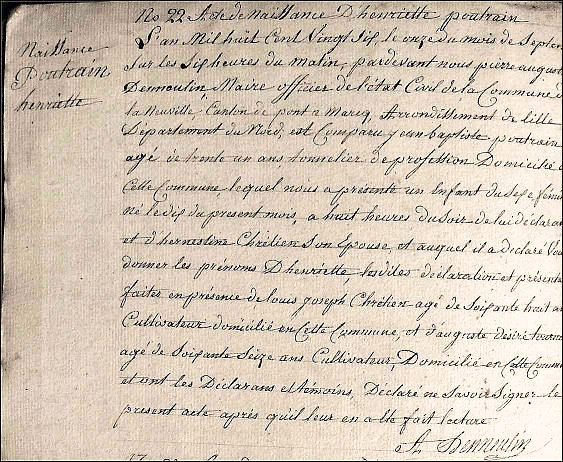 No 22 Acte de Naissance D'henriette poutrain
Naissance
Poutrain
henriette
L'an Mil huit Cent Vingt Six, le onze du mois de Septem
Sur les Six heures du Matin, pardevant nous pierre august
Demoulin, Maire officier de l'état Civil de la Commune de
la Neuville, Canton de pont a Marcq, Arrondissement de lille
Département du Nord, est Comparu jean baptiste poutrain
agé de trente un ans tonnelier de profession Domicilié
Cette Commune, lequel nous a présenté un Enfant du Sexe fémin
né le dix du présent mois, a huit heures du Soir de lui déclarant
et d'hernestine Chrétien Son Epouse et auquel il a déclaré Vou
donner les prénoms D'henriette, les dites déclaration et présente
faites en présence de louis joseph Chrétien agé de Soixante huit an
Cultivateur domicilié en Cette Commune, et d'auguste désiré
agé de Soixante Seize ans Cultivateur, Domicilié en Cette Commu
et ont les Déclarans et témoins, Déclaré ne Savoir Signer le
présent acte après qu'il leur en a été fait lecture
A Demoulin